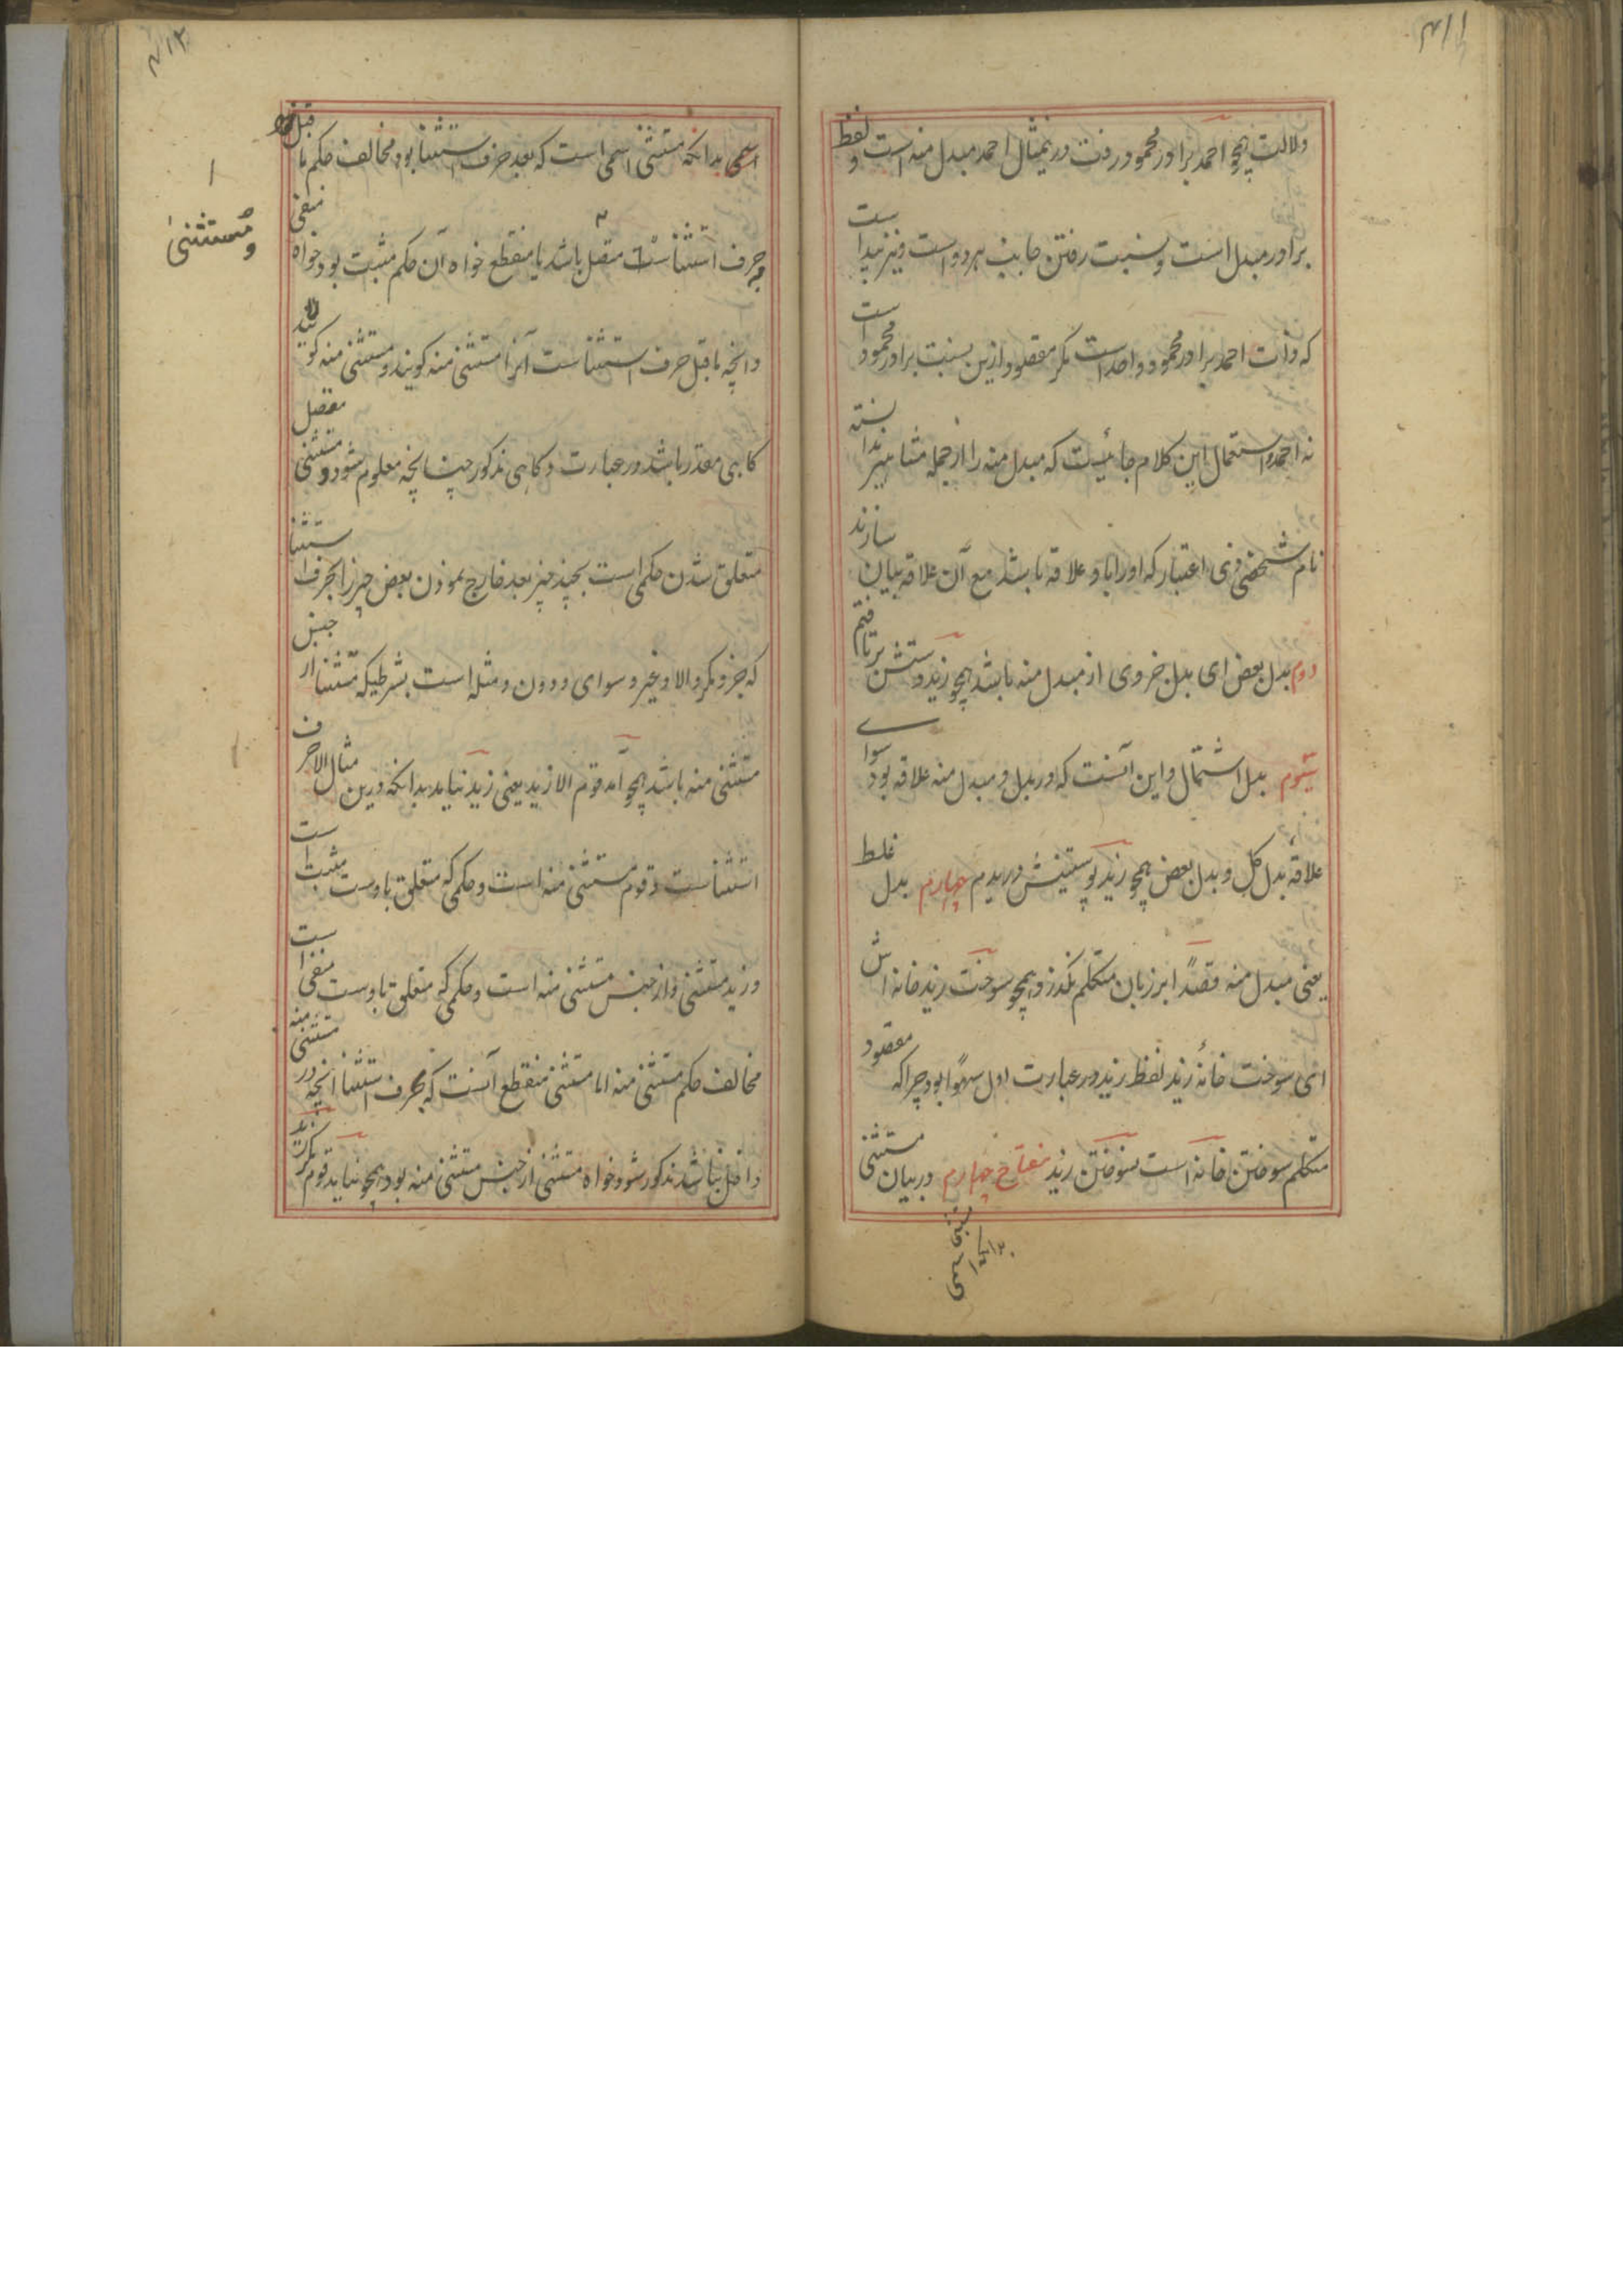 ۴۱۱
دلالت همچو احمد برادر محمود رفت درینمثال احمد مبدل منه است و لفظ
برادر مبدل است و نسبت رفتن جانب هر دو است و نیز پیدا است
که ذات احمد و برادر محمود واحد است مگر مقصود ازین نسبت برادر محمود است
نه احمد و استعمال این کلام جائیست که مبدل منه را از جمله مشاهیر ندانسته
نام شخصی ذی اعتبار که او را با و علاقه باشد مع آن علاقه بیان سازند
دوم بدل بعض ای بدل جزوی از مبدل منه باشد همچو زید دستش برتافتم
سیوم بدل اشتمال و این آنست که در بدل و مبدل منه علاقه بود سوای
علاقهٔ بدل کل و بدل بعض همچو زید پوستینش دریدم چهارم بدل غلط
یعنی مبدل منه قصداً بر زبان متکلم نگذرد همچو سوخت زید خانه اش
ای سوخت خانهٔ زید لفظ زید در عبارت اول سهواً بود چرا که مقصود
متکلم سوختن خانه است نه سوختن زید مفتاح چهارم در بیان مستثنی
۴۱۲
اسمی بدانکه مستثنی اسمی است که بعد حرف استثنا بود مخالف حکم ما قبل
حرف استثنا است متصل باشد یا منقطع خواه آن حکم مثبت بود خواه منفی
و انچه ما قبل حرف استثنا است آنرا مستثنی منه گویند و مستثنی منه گویند
گاهی مقدر باشد در عبارت و گاهی مذکور چنانچه معلوم شود و مستثنی متصل
متعلق شدن حکمی است بچند چیز بعد خارج نمودن بعض چیز را بحرف استثنا
که جز و مگر و الا و غیر و سوای و دون و مثله است بشرطیکه مستثنا از جنس
مستثنی منه باشد همچو آمد قوم الا زید یعنی زید نیامد بدانکه درین مثال الا حرف
استثنا ست و قوم مستثنی منه است و حکمی که متعلق باوست مثبت است
و زید مستثنی و از جنس مستثنی منه است و حکمی که متعلق باوست منفی است
مخالف حکم مستثنی منه اما مستثنی منقطع آنست که بحرف استثنا انچه در مستثنی منه
داخل نباشد مذکور شود خواه مستثنی از جنس مستثنی منه بود همچو نیاید قوم مگر زید
۱
مُستثنیٰ